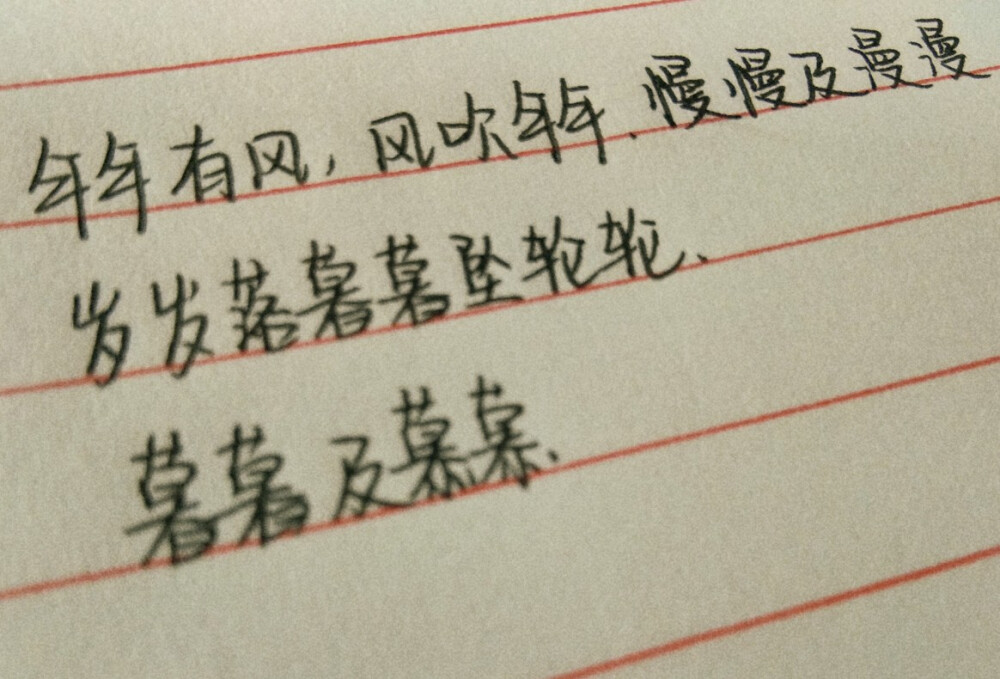 年年有风，风吹年年.慢慢及漫漫
岁岁落暮暮坠轮轮.
暮暮及慕慕.